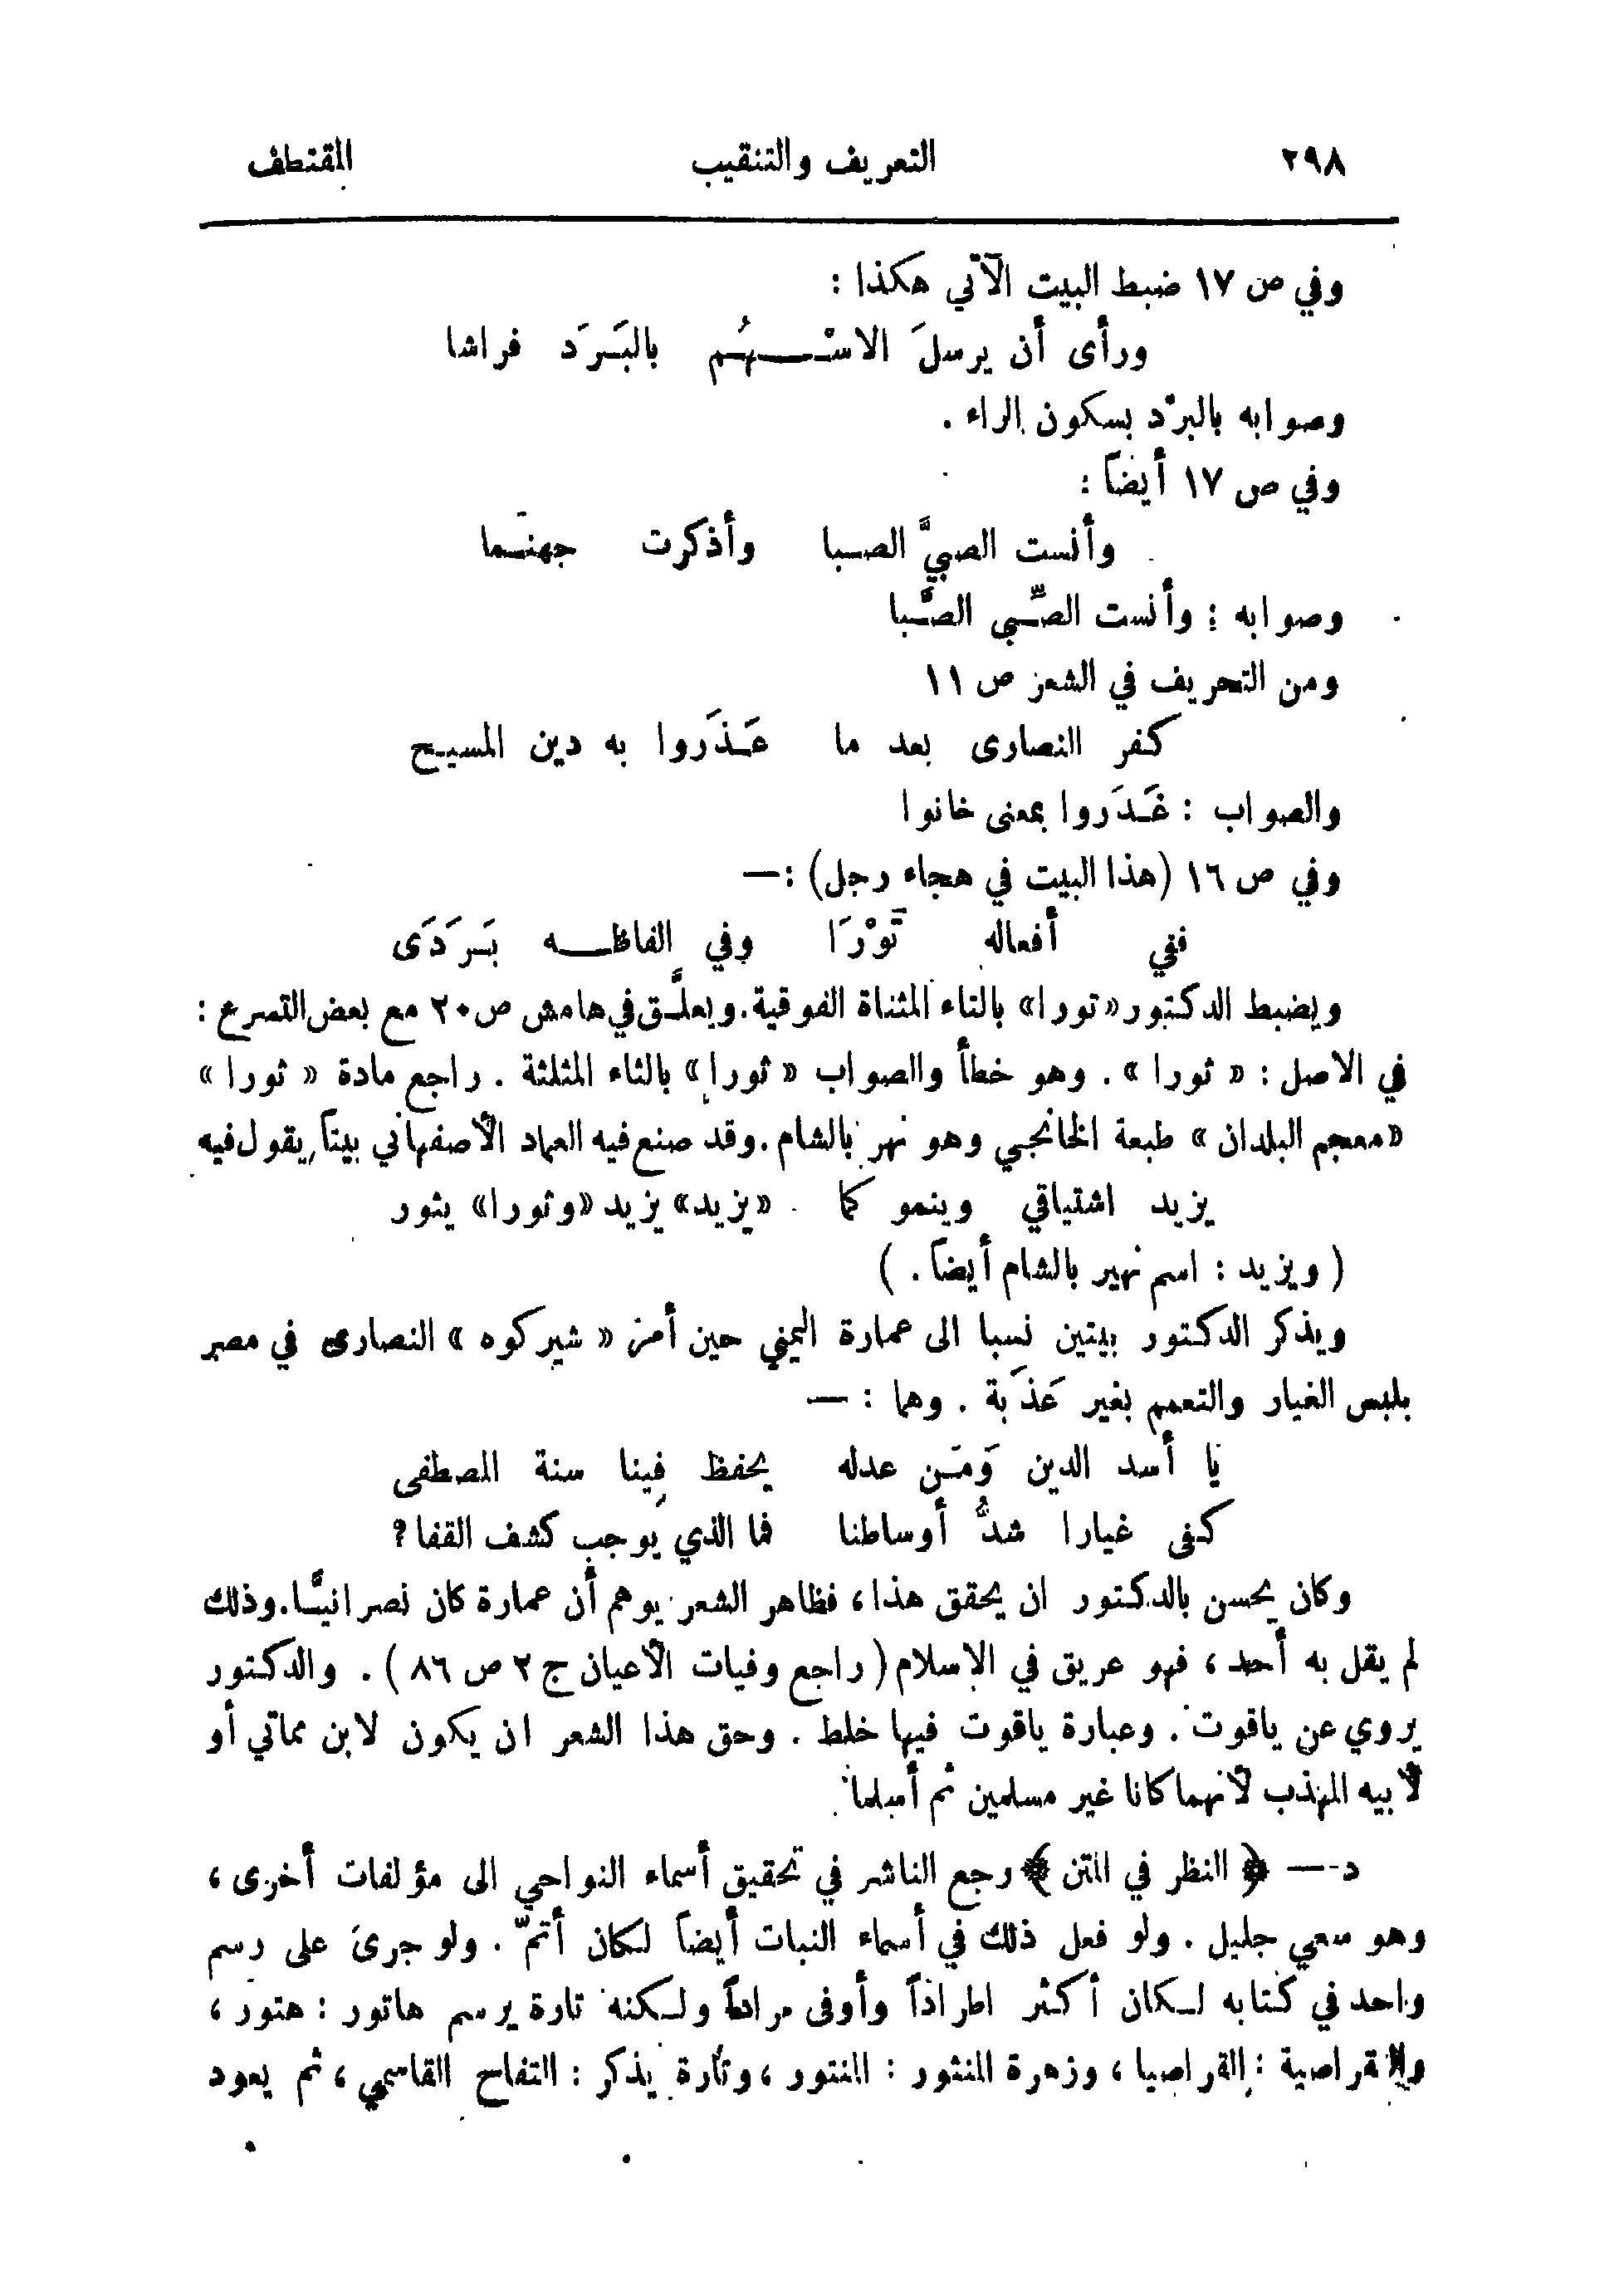 ٢٩٨ التعريف والتنقيب المقتطف
وفي ص ١٧ ضبط البيت الآتي هكذا :
ورأى أن يرسلَ الاسْـهُـم بالبَـرَد فراشا
وصوابه بالبرْد بسكون الراء .
وفي ص ١٧ أيضاً :
وأنست الصبيَّ الصـبا وأذكرت جهنَّـما
وصوابه : وأنست الصِّـبي الصَّـبا
ومن التحريف في الشعر ص ١١
كفر النصارى بعد ما عَـذَروا به دين المسيح
والصواب : غَـدَروا بمعنى خانوا
وفي ص ١٦ (هذا البيت في هجاء رجل) :—
ففي أفعاله تَوْرَا وفي الفاظـه بَـرَدَى
ويضبط الدكتور «تورا» بالتاء المثناة الفوقية. ويعلِّـق في هامش ص ٢٠ مع بعض التسرع :
في الاصل : « ثورا » . وهو خطأ والصواب « ثورا » بالثاء المثلثة . راجع مادة « ثورا »
«معجم البلدان » طبعة الخانجي وهو نهر بالشام . وقد صنع فيه العماد الأصفهاني بيتاً يقول فيه
يزيد اشتياقي وينمو كما «يزيد» يزيد «وثورا» يثور
( ويزيد : اسم نهير بالشام أيضاً . )
ويذكر الدكتور بيتين نسبا الى عمارة اليمني حين أمر « شيركوه » النصارى في مصر
بلبس الغيار والتعمم بغير عَذَبة . وهما : —
يا أسد الدين وَمَـن عدله يحفظ فينا سنة المصطفى
كفى غيارا شدُّ أوساطنا فما الذي يوجب كشف القفا ?
وكان يحسن بالدكتور ان يحقق هذا ، فظاهر الشعر يوهم أن عمارة كان نصرانيًّـا . وذلك
لم يقل به أحد ، فهو عريق في الإسلام ( راجع وفيات الأعيان ج ٢ ص ٨٦ ) . والدكتور
يروي عن ياقوت . وعبارة ياقوت فيها خلط . وحق هذا الشعر ان يكون لابن مماتي أو
لأبيه المهذب لأنهما كانا غير مسلمين ثم أسلما
د — ﴿ النظر في المتن ﴾ رجع الناشر في تحقيق أسماء النواحي الى مؤلفات أخرى ،
وهو سعي جليل . ولو فعل ذلك في أسماء النبات أيضاً لكان أتمّ . ولو جرى على رسم
واحد في كتابه لـكان أكثر اطراداً وأوفى مراداً ولـكنه تارة يرسم هاتور : هتور ،
والقراصية : القراصيا ، وزهرة المنثور : المنتور ، وتارة يذكر : التفاح القاسمي ، ثم يعود